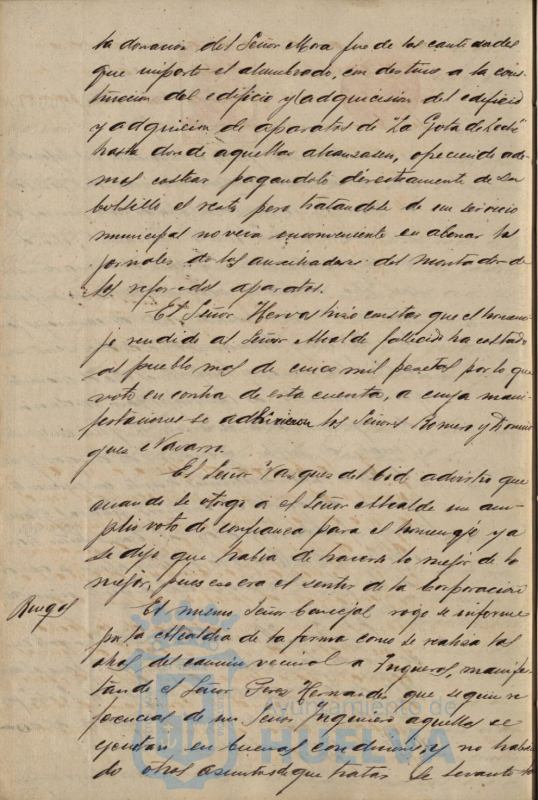 la donacion del Señor Mora fue de las cantidades
que importe el alumbrado, con destino a la cons
truccion del edificio y adquicision del edificio
y adquicion de aparatos de "La Gota de Leche"
hasta donde aquellas alcanzasen, ofreciendo ade
mas costear pagandolo directamente de su
bolsillo el resto pero tratandose de un servicio
municipal no veia inconveniente en abonar los
jornales de los auxiliadores del montador de
los referidos aparatos.
El Señor Hervas hizo constar que el homena
je rendido al Señor Alcalde fallecido ha costado
al pueblo mas de cinco mil pesetas por lo que
voto en contra de esta cuenta, a cuya mani
festaciones se adhirieron los Señores Romero y Domin
guez Navarro.
El Señor Vazquez del Cid advirtio que
cuando se otorgo a el Señor Alcalde un am
plio voto de confianza para el homenaje ya
se dijo que habia de hacerse lo mejor de lo
mejor, pues ese era el sentir de la Corporacion
Ruegos
El mismo Señor Concejal rogo se informe
por la Alcaldia de la forma como se realiza las
obras del camino vecinal a Trigueros, manifes
tando el Señor Perez Hernandez que segun re
ferencias de un Señor Ingeniero aquellas se
ejecutan en buenas condiciones, y no habien
do otros asuntos de que tratar se levanto la
Ayuntamiento de
HUELVA